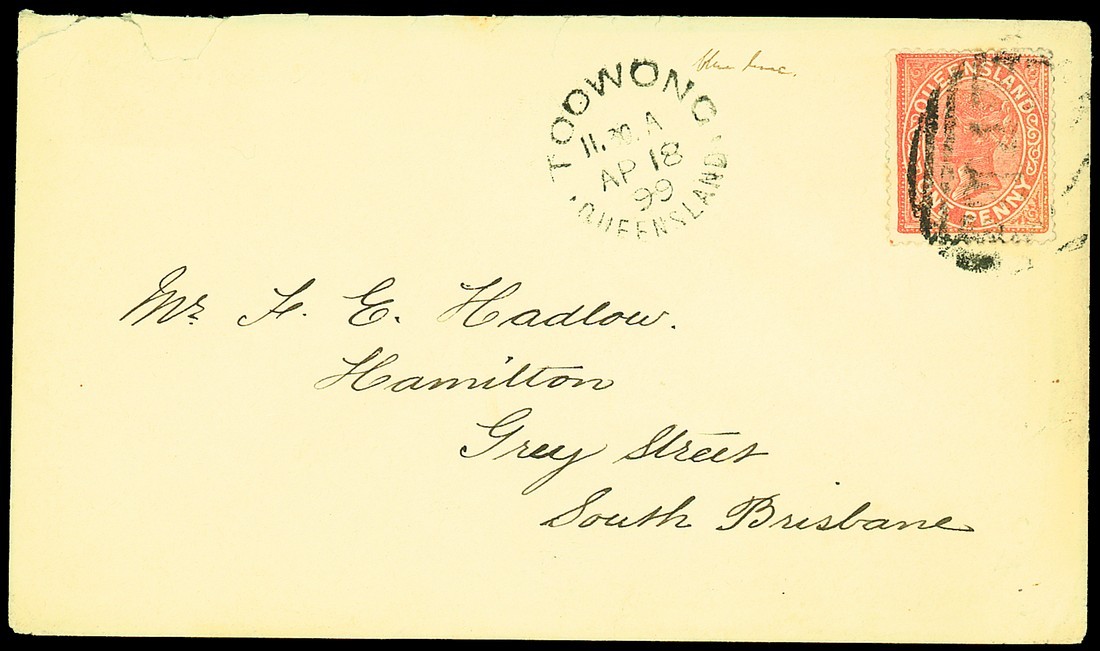 TOOWONG
11.30.A
AP 18
99
QUEENSLAND
QUEENSLAND
ONE PENNY
Mr. F. E. Hadlow.
Hamilton
Grey Street
South Brisbane